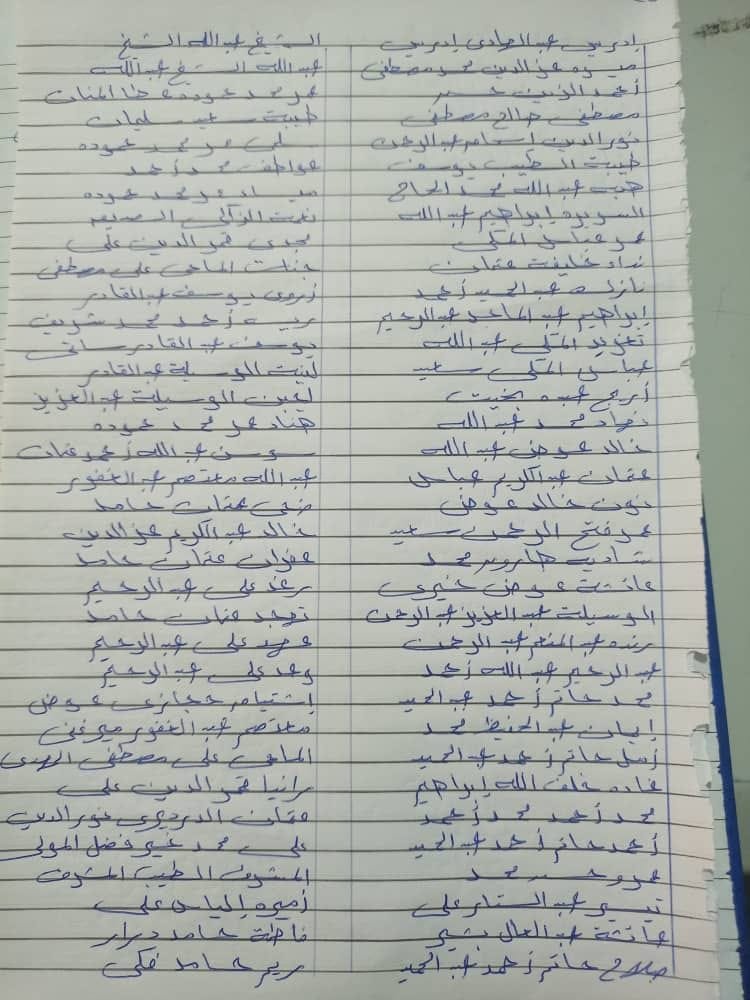 إدريس عبد الهادي إدريس
ميسره عز الدين محمد مصطفى
أحمد الزين
مصطفى صالح مصطفى
نور الدين اسامه عبد الرحمن
طيبة الطيب يوسف
هبه عبد الله محمد الحاج
السويره إبراهيم عبد الله
عمر عباس المكي
نداء خليفة عثمان
نازك عبد الحميد أحمد
إبراهيم عبد الماجد عبد الرحيم
تغريد المكي عبد الله
عباس المكي سعيد
أريج عبده بخيت
نهاد محمد عبد الله
خالد عوض عبد الله
عثمان عبد الكريم عباس
نون خالد عوض
عمر فتح الرحمن سعيد
شاديه هارون محمد
عائشة عوض خيري
الوسيلة عبد العزيز عبد الرحمن
رنده عبد المنعم عبد الرحمن
عبد الرحيم عبد الله أحمد
محمد حاتم أحمد عبد الحميد
إيمان عبد الحفيظ محمد
أمل حاتم أحمد عبد الحميد
غاده خلف الله إبراهيم
محمد أحمد محمد أحمد
أحمد حاتم أحمد عبد الحميد
عمر محمد
تيسير عبد الستار علي
عائشة عبد العال بشير
صلاح حاتم أحمد عبد الحميد
الشيخ عبد الله الشيخ
عبد الله الشيخ عبد الله
عمر محمد حموده عطا المنان
طيبة سعيد سليمان
علي عمر محمد حموده
عواطف محمد أحمد
عمر محمد حموده
نعمات الزاكي
مجدي قمر الدين علي
جنات الماحي علي مصطفى
أروى يوسف عبد القادر
أحمد محمد شريف
يوسف عبد القادر ساتي
لينت الوسيلة عبد القادر
لجين الوسيلة عبد العزيز
هناد عمر محمد حموده
سوسن عبد الله أحمد عثمان
عبد الله معتصم عبد الغفور
ضحى عثمان حامد
خالد عبد الكريم عز الدين
غفران عثمان حامد
رغد علي عبد الرحيم
توجد عثمان حامد
عهد علي عبد الرحيم
وعد علي عبد الرحيم
إبتسام حجازي عوض
معتصم عبد الغفور ميرغني
الماحي علي مصطفى المهدي
رانيا قمر الدين علي
عثمان الدرديري نور الدين
علي محمد خير فضل المولى
المشرف الطيب المشرف
أميره إلياس علي
فاطمة حامد ضرار
ريم حامد فكي